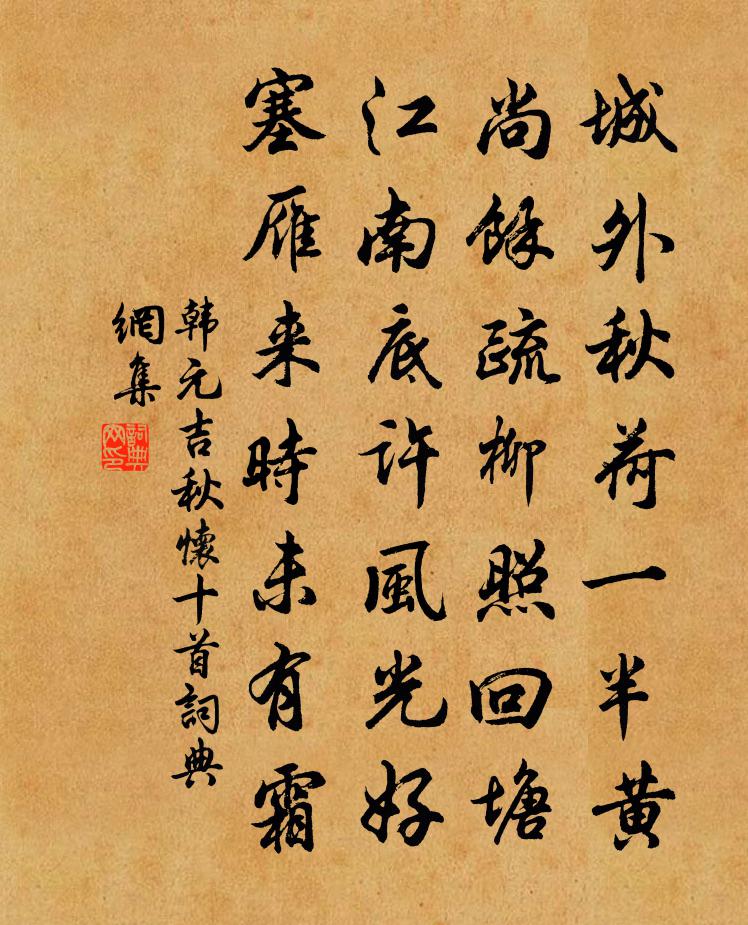 城外秋荷一半黄
尚餘疏柳照回塘
江南底許風光好
塞雁来時未有霜
韩元吉秋懷十首詞典
網集
詞典
网印